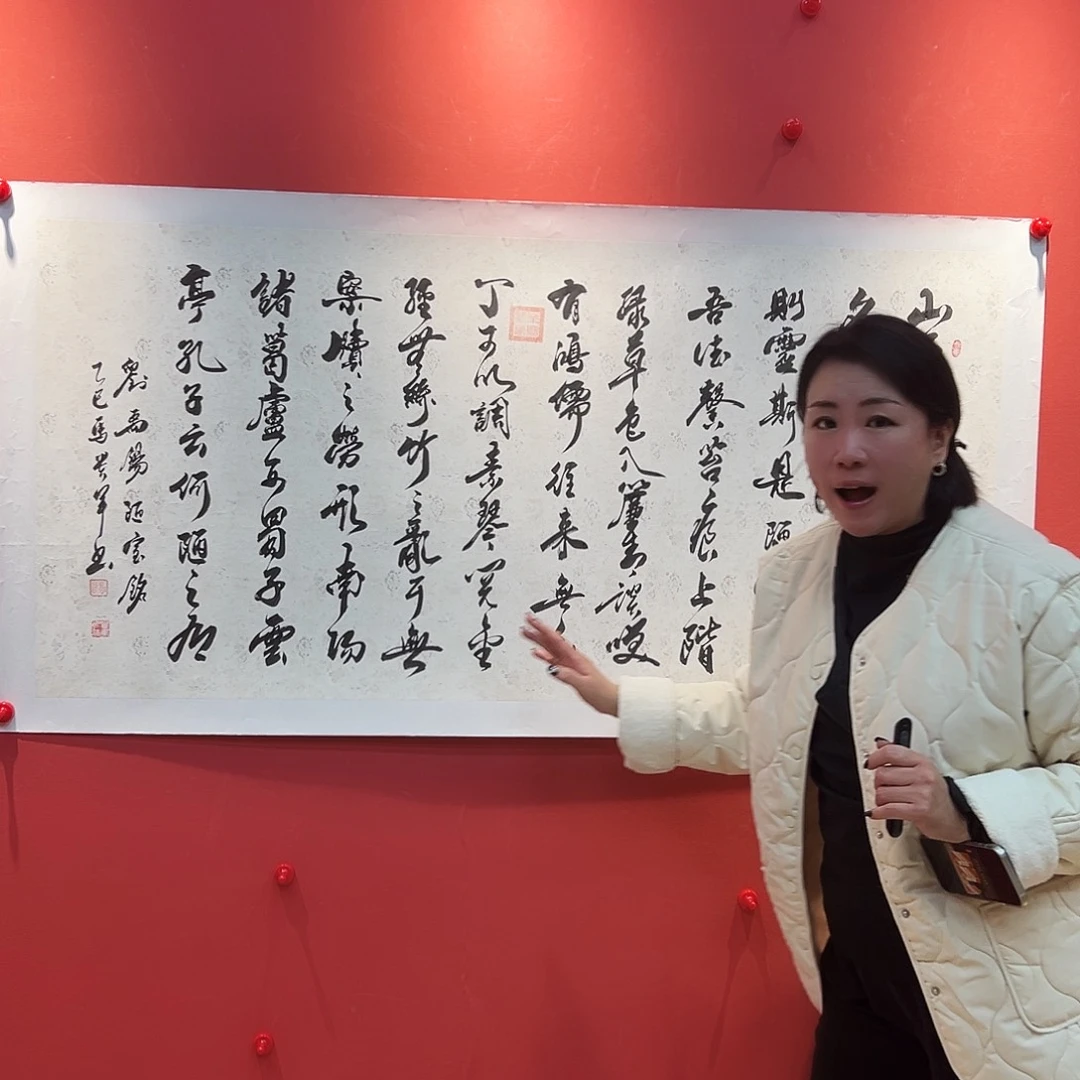 山
名
則靈斯是陋
吾德馨苔痕上階
綠草色入簾青談咲
有鴻儒往来無
丁可以調素琴閱金
經無絲竹之亂耳無
案牘之勞形南陽
諸葛廬西蜀子雲
亭孔子云何陋之有
劉禹錫陋室銘
乙巳馬軍書